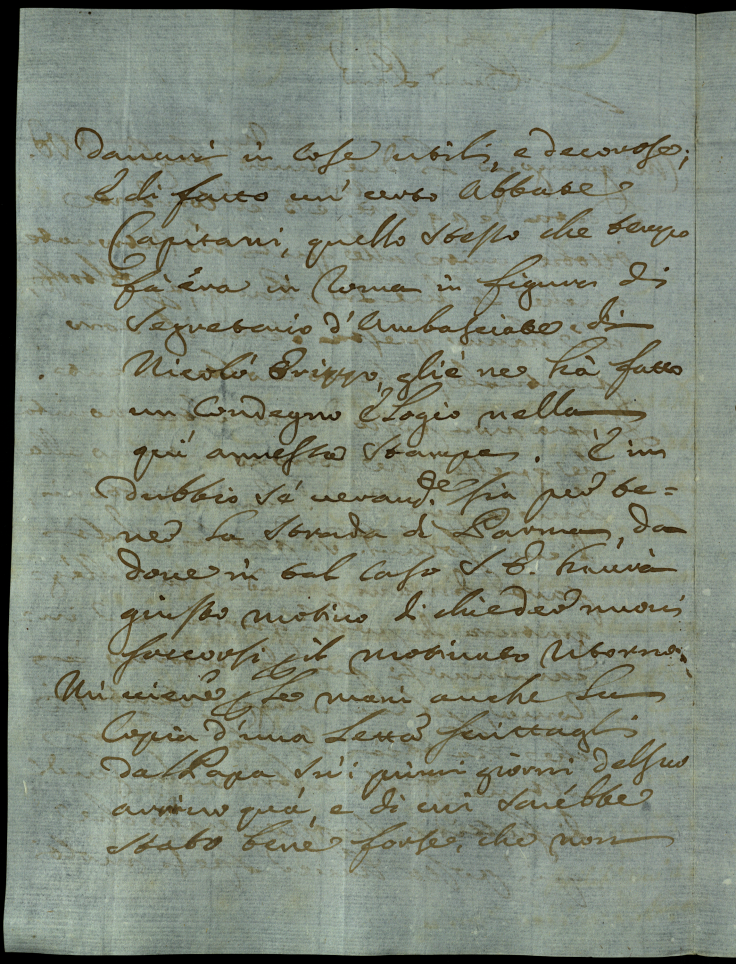 danari in cose utili, e decorose;
E di fatto un' certo Abbate
Capitani, quello stesso che tempo
fà era in Roma in figura di
Segretario d'Ambasciate di
Nicolò Erizzo, gliè ne hà fatto
un Condegno Elogio nella
qui annessa stampa. È in
dubbio sé veram.te sia per te=
nere la strada di Parma, da
dove in tal caso S. E. havrà
giusto motivo di chieder nuovi
soccorsi p il motivato ritorno.
Mi viene p le mani anche la
Copia d'una Lettã scrittagli
dal Papa sù i primi giorni del suo
arrivo quà, e di cui sarébbe
stato bene forse, che non